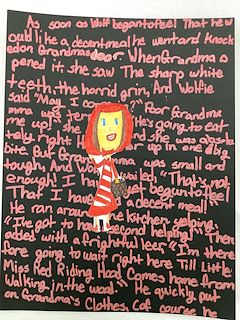 As soon as Wolf began to feel That he w
ould like a decent meal he went and knock
ed on Grandmas door. When Grandma o
pened it, she saw The sharp white
teeth, the horrid grin, And Wolfie
said "May I come Poor Grandma
mma was ter He's going to eat
me up! she
taly right was absolu
up in one big
bite. But Gran mma was small and
tough, And W wailed "That's not
enough! I ha yet begun to feel
That I hav a decent meal!
He ran around the kitchen yelping,
"I've got to have second helping! Then
added with a frightful leer, "I'm there
fore going to wait right here Till Little
Miss Red Riding Hood Comes home from
Walking in the wood." He quickly put
on Grandma's Clothes, (of course he